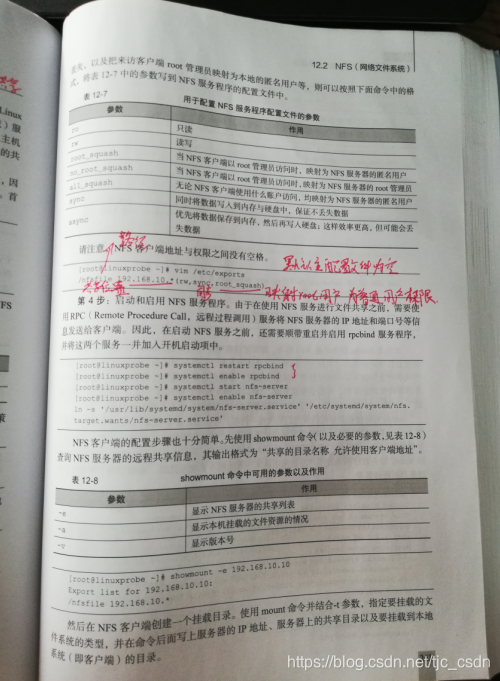 12.2 NFS（网络文件系统）
丢失，以及把来访客户端 root 管理员映射为本地的匿名用户等，则可以按照下面命令中的格
式，将表 12-7 中的参数写到 NFS 服务程序的配置文件中。
表 12-7
用于配置 NFS 服务程序配置文件的参数
参数 作用
ro 只读
rw 读写
root_squash 当 NFS 客户端以 root 管理员访问时，映射为 NFS 服务器的匿名用户
no_root_squash 当 NFS 客户端以 root 管理员访问时，映射为 NFS 服务器的 root 管理员
all_squash 无论 NFS 客户端使用什么账户访问，均映射为 NFS 服务器的匿名用户
sync 同时将数据写入到内存与硬盘中，保证不丢失数据
async 优先将数据保存到内存，然后再写入硬盘；这样效率更高，但可能会丢
失数据
请注意，NFS 客户端地址与权限之间没有空格。
默认主配置文件为空
[root@linuxprobe ~]# vim /etc/exports
/nfsfile 192.168.10.*(rw,sync,root_squash)
映射root用户
第 4 步：启动和启用 NFS 服务程序。由于在使用 NFS 服务进行文件共享之前，需要使
用 RPC（Remote Procedure Call，远程过程调用）服务将 NFS 服务器的 IP 地址和端口号等信
息发送给客户端。因此，在启动 NFS 服务之前，还需要顺带重启并启用 rpcbind 服务程序，
并将这两个服务一并加入开机启动项中。
[root@linuxprobe ~]# systemctl restart rpcbind
[root@linuxprobe ~]# systemctl enable rpcbind
[root@linuxprobe ~]# systemctl start nfs-server
[root@linuxprobe ~]# systemctl enable nfs-server
ln -s '/usr/lib/systemd/system/nfs-server.service' '/etc/systemd/system/nfs.
target.wants/nfs-server.service'
NFS 客户端的配置步骤也十分简单。先使用 showmount 命令（以及必要的参数，见表 12-8）
查询 NFS 服务器的远程共享信息，其输出格式为“共享的目录名称 允许使用客户端地址”。
表 12-8
showmount 命令中可用的参数以及作用
参数 作用
-e 显示 NFS 服务器的共享列表
-a 显示本机挂载的文件资源的情况
-v 显示版本号
[root@linuxprobe ~]# showmount -e 192.168.10.10
Export list for 192.168.10.10:
/nfsfile 192.168.10.*
然后在 NFS 客户端创建一个挂载目录。使用 mount 命令并结合-t 参数，指定要挂载的文
件系统的类型，并在命令后面写上服务器的 IP 地址、服务器上的共享目录以及要挂载到本地
系统（即客户端）的目录。
https://blog.csdn.net/tjc_csdn